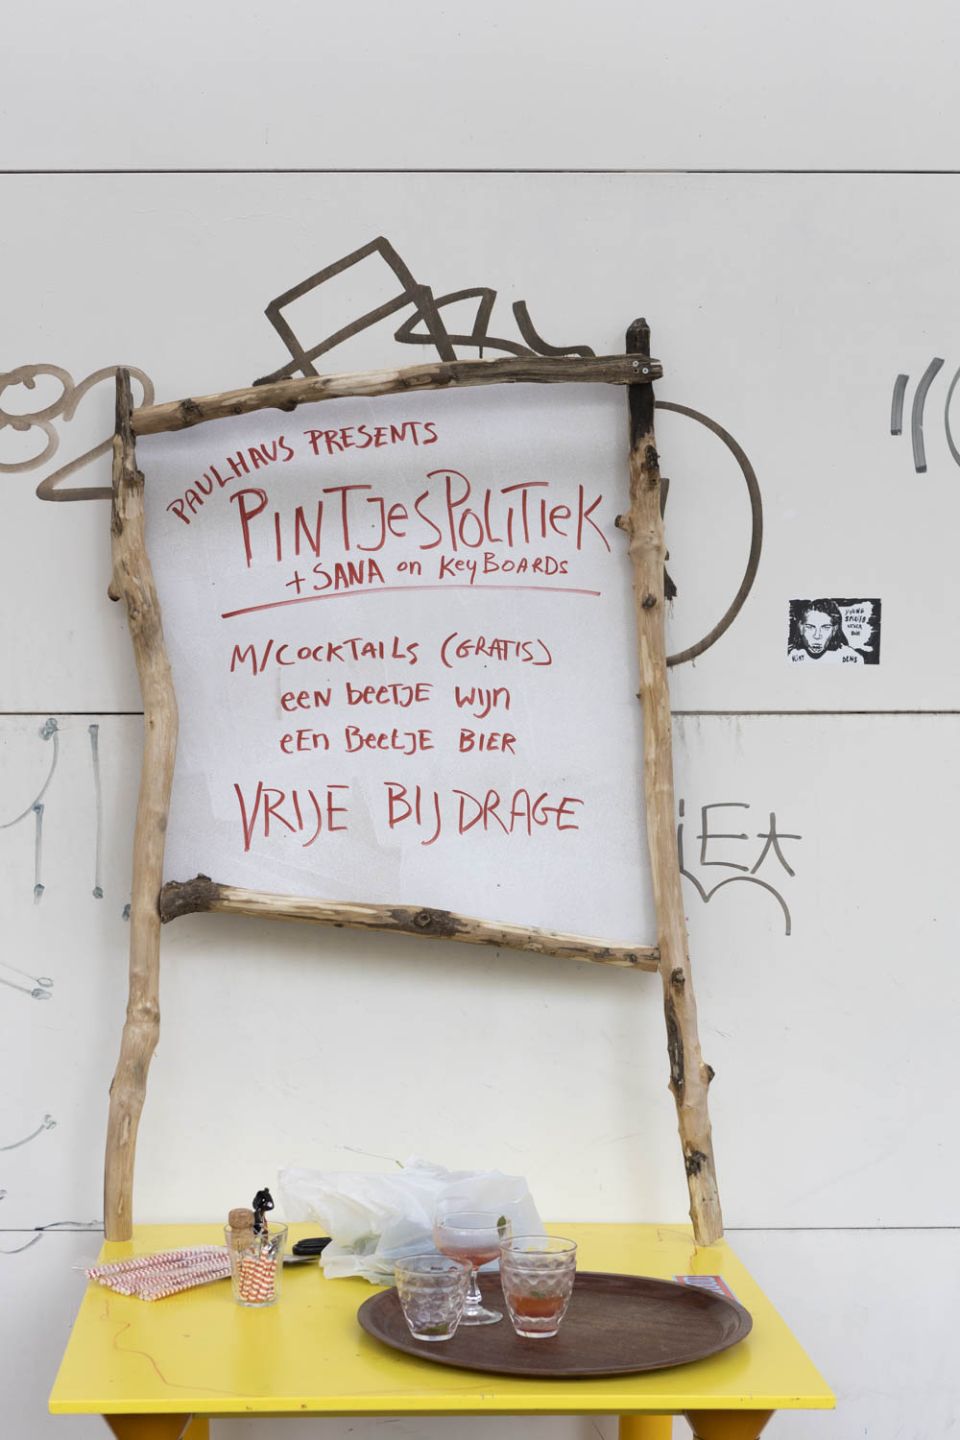 PAULHAUS PRESENTS
PINTJESPOLITIEK
+ SANA on KeyBOARDS
M/COCKTAILS (GRATIS)
eeN beeTJE wijn
eEn BeetJE BIER
VRIJE BIJDRAGE